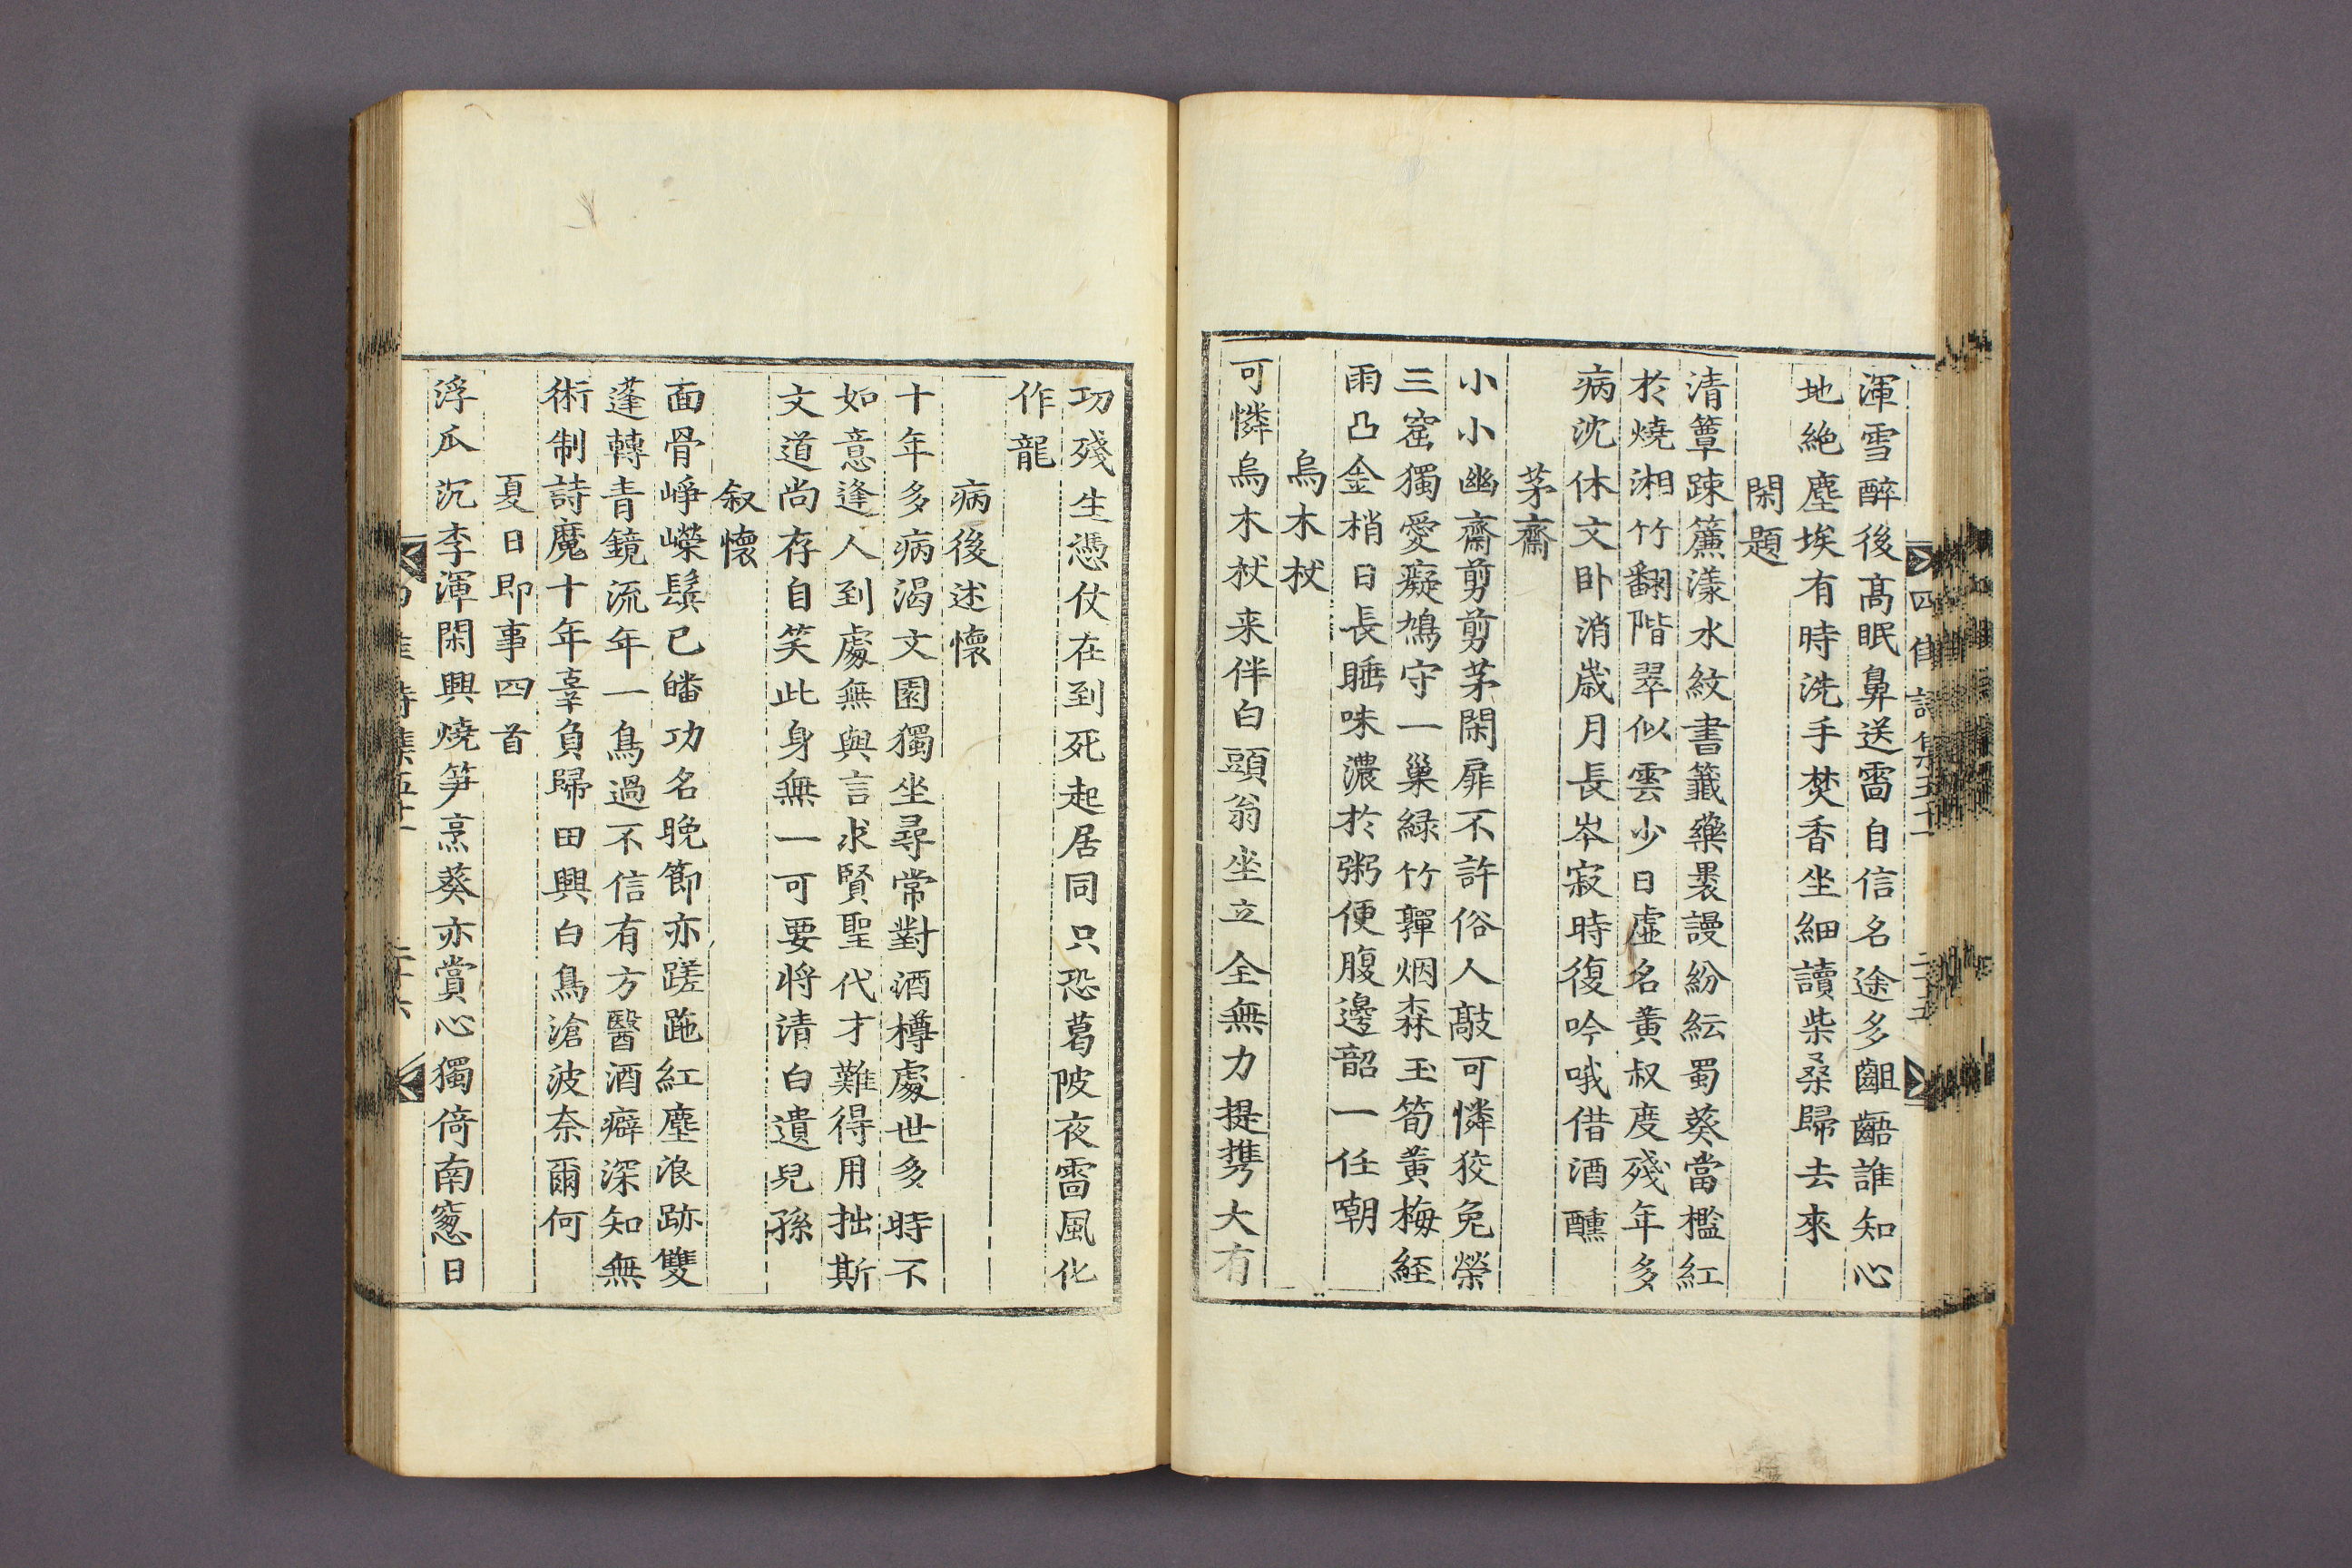 渾雪醉後高眠鼻送雷自信名途多齟齬誰知心
地絶塵埃有時洗手焚香坐細讀柴桑歸去來
閑題
清簟踈簾漾水紋書籤藥褁謾紛紜蜀葵當檻紅
於燒湘竹翻階翠似雲少日虛名黃叔度殘年多
病沈休文卧消歲月長岑寂時復吟哦借酒醺
茅齋
小小幽齋剪剪茅閑扉不許俗人敲可憐狡免榮
三窟獨愛癡鳩守一巢緑竹嚲烟森玉筍黃梅經
雨凸金梢日長睡味濃於粥便腹邊韶一任嘲
烏木杖
可憐烏木杖来伴白頭翁坐立全無力提携大有
功殘生憑仗在到死起居同只恐葛陂夜雷風化
作龍
病後述懷
十年多病渴文園獨坐尋常對酒樽處世多時不
如意逢人到處無與言求賢聖代才難得用拙斯
文道尚存自笑此身無一可要將清白遺兒孫
叙懷
面骨崢嶸鬂已皤功名晚節亦蹉跎紅塵浪跡雙
蓬轉青鏡流年一鳥過不信有方醫酒癖深知無
術制詩魔十年辜負歸田興白鳥滄波奈爾何
夏日即事四首
浮瓜沉李渾閑興燒笋烹葵亦賞心獨倚南窓日